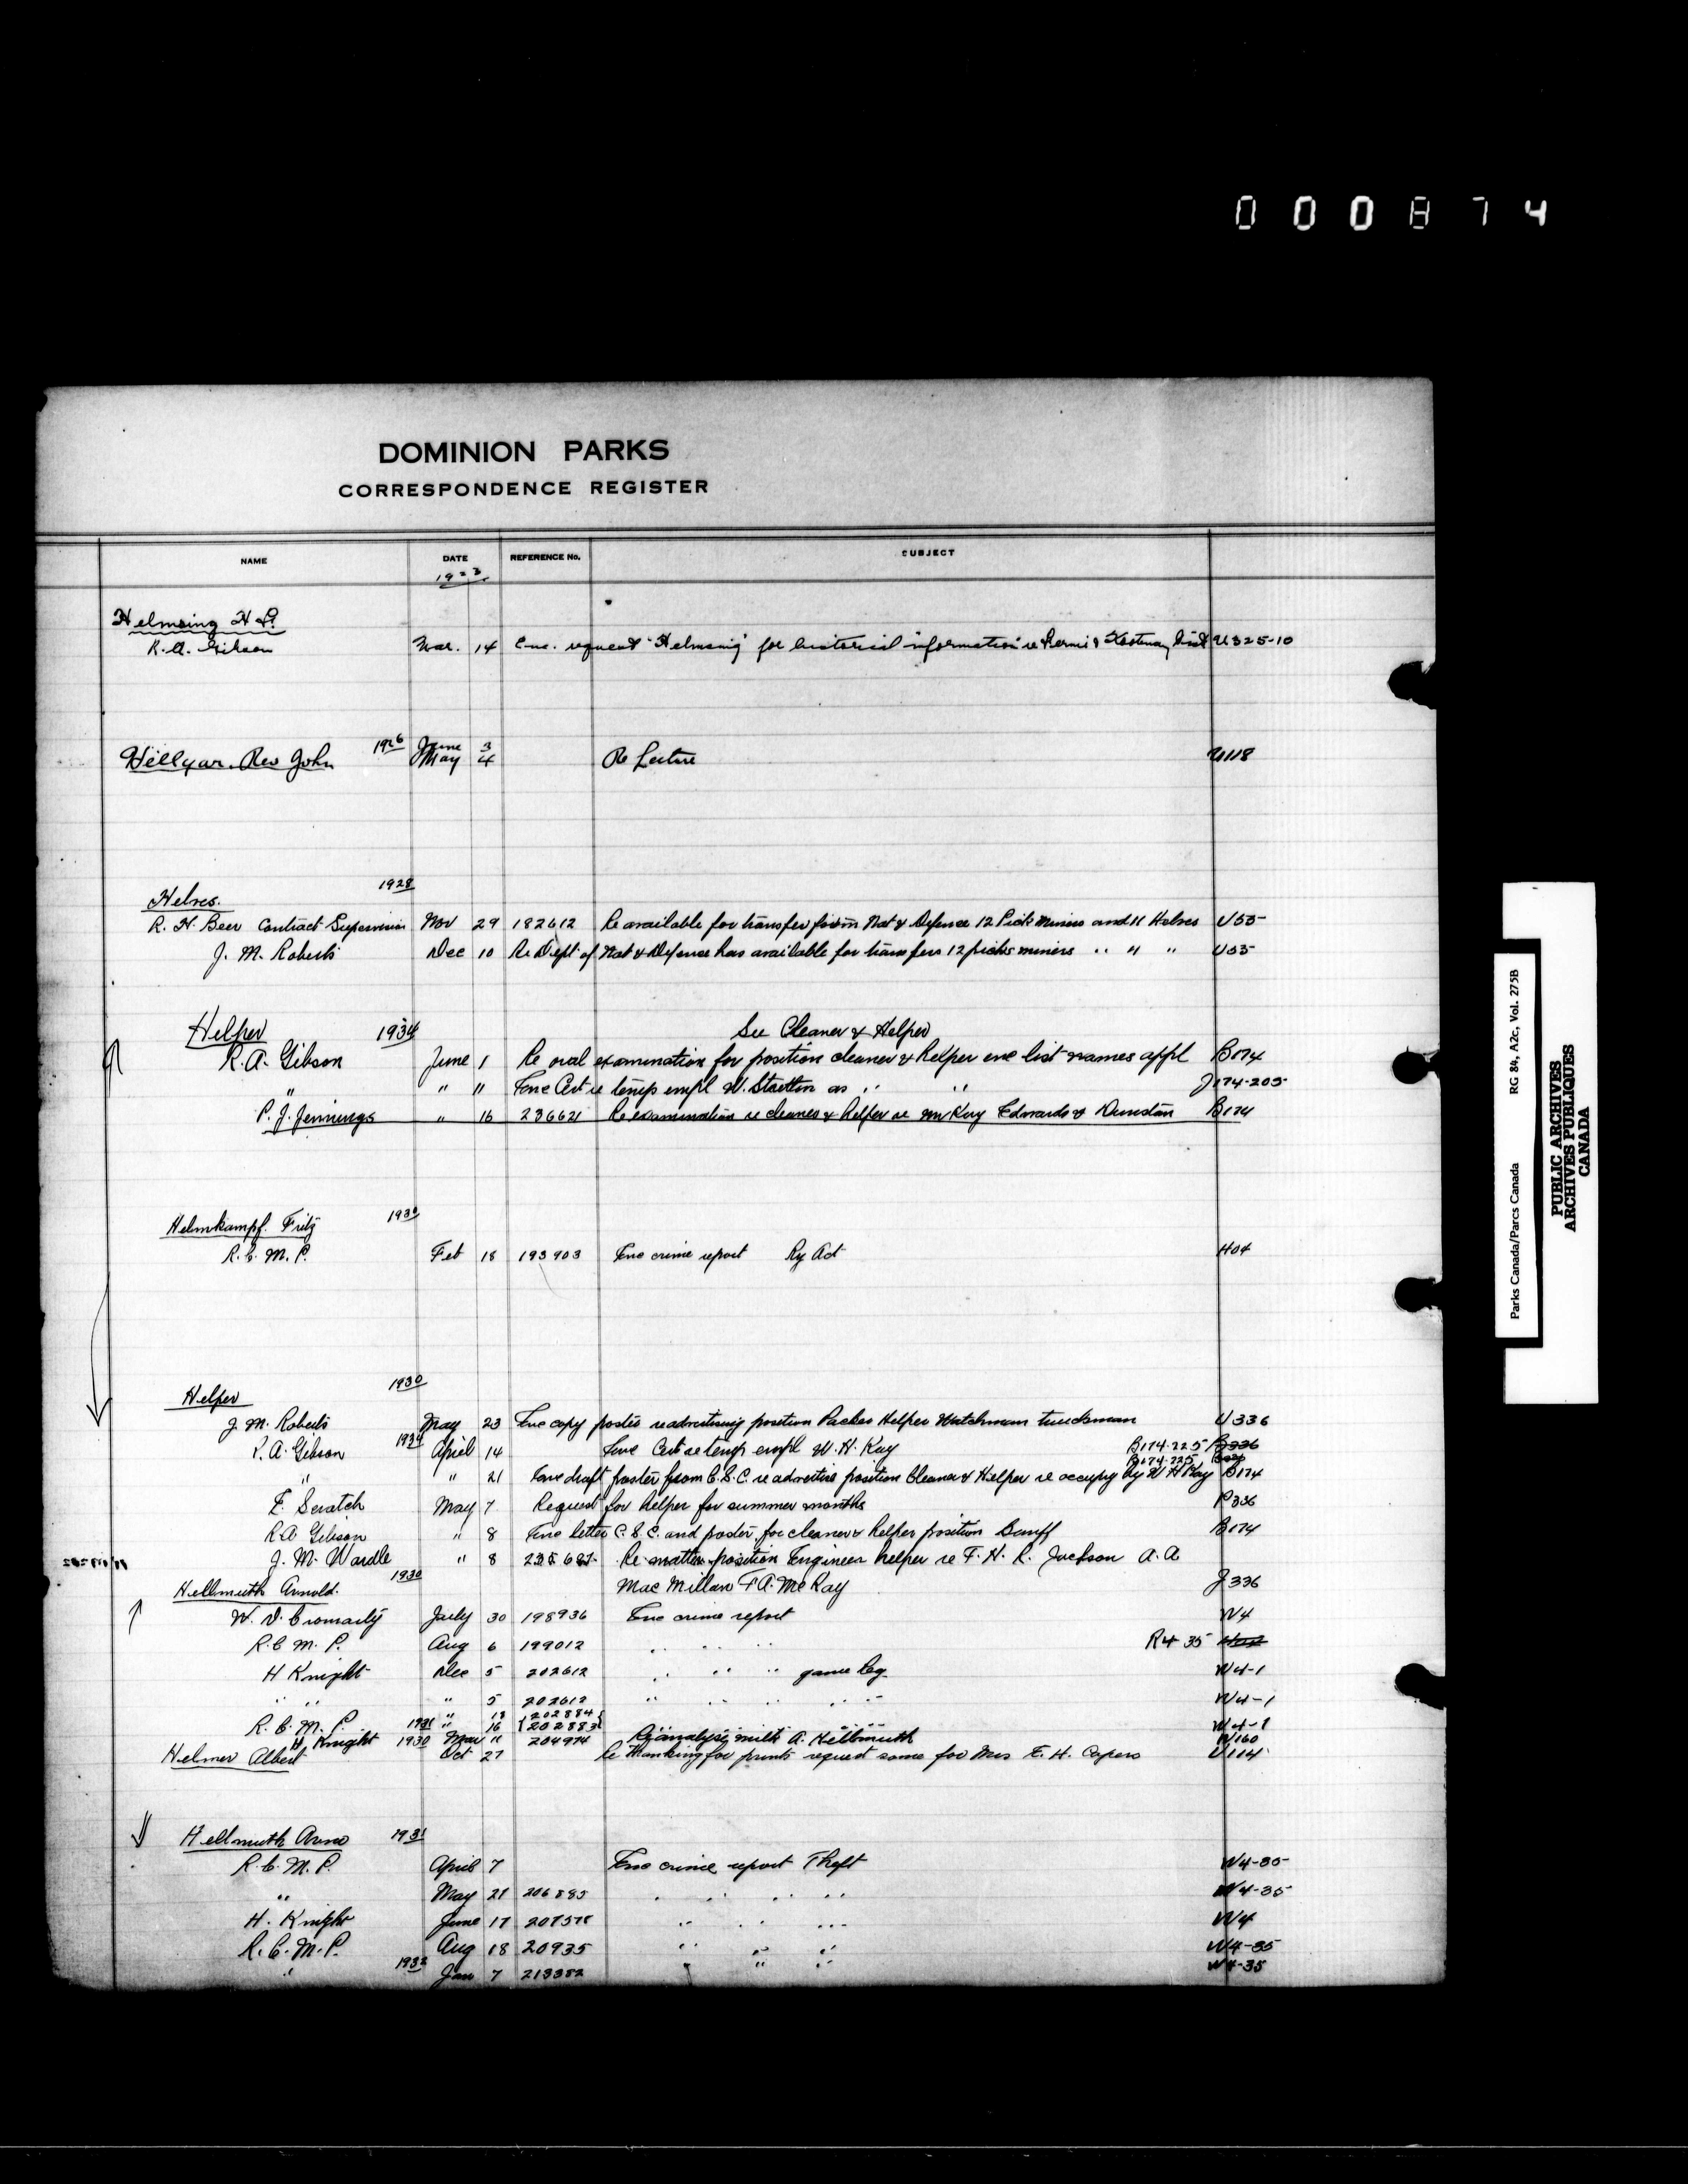 0 0 0 8 7 4
DOMINION PARKS
CORRESPONDENCE REGISTER
NAME DATE REFERENCE No. SUBJECT
Helmsing H
R. A. Gibson Mar. 14 Enc. request "Helmsing" for historical information re U325-10
1926 June 3
Hellyar. Rev John May 4 Re Lecture U118
1928
Helves.
R. H. Beer Contract Supervision Nov 29 182612 Re available for transfer from Nat & Defence 12 Pick miners and 11 Helves U55
J. M. Roberts Dec 10 Re Dept of Nat & Defence has available for transfers 12 picks miners " " " U55
Helper 1934 See Cleaner & Helper
R. A. Gibson June 1 Re oral examination for position cleaner & helper enc list names appl B174
" " 11 Enc Cert re temp empl W. Stretton as " " J174-205
P. J. Jennings " 16 236621 Re examination re cleaner & helper re McKay Edwards & Dunstan B174
Helmkampf. Fritz 1930
R. C. M. P. Feb 18 193903 Enc crime report Ry Act H04
Helper 1930
J. M. Roberts May 23 Enc copy poster re advertising position Packer Helper Watchman trucksman U336
R. A. Gibson 1934 April 14 Enc Cert re temp empl W. H. Kay B174-225 B336
B174-225
" " 21 Enc draft poster from C.S.C. re advertise position Cleaner & Helper re occupy by W H Kay B174
E. Scratch May 7 Request for helper for summer months P336
R A Gibson " 8 Enc letter C.S.C. and poster for cleaner & helper position Banff B174
J. M. Wardle " 8 Re matter position Engineer helper re F. H. R. Jackson A. A
1930
Hellmuth Arnold. Mac Millan F. A. McKay J336
W. D. Cromarty July 30 198936 Enc crime report W4
R. C. M. P. Aug 6 199012 " " " R4-35
H Knight Dec 5 202612 " " " game Reg W4-1
" " " 5 202612 " " " " " W4-1
" 13 202884
R. C. M. P. 1931 " 16 202883 " " W4-1
H. Knight Mar 11 204974 Re analysis milk A. Hellmuth W160
Helmer Albert 1930 Oct 27 Re thanking for prints request some for Mrs E. H. Capers U114
Hellmuth Arno 1931
R. C. M. P. April 7 Enc crime report Theft W4-35
" May 21 206885 " " " " W4-35
H. Knight June 17 207578 " " " W4
R. C. M. P. Aug 18 20935 " " " W4-35
" 1932 Jan 7 213352 " " " W4-35
Parks Canada/Parcs Canada RG 84, A2c, Vol. 275B
PUBLIC ARCHIVES
ARCHIVES PUBLIQUES
CANADA